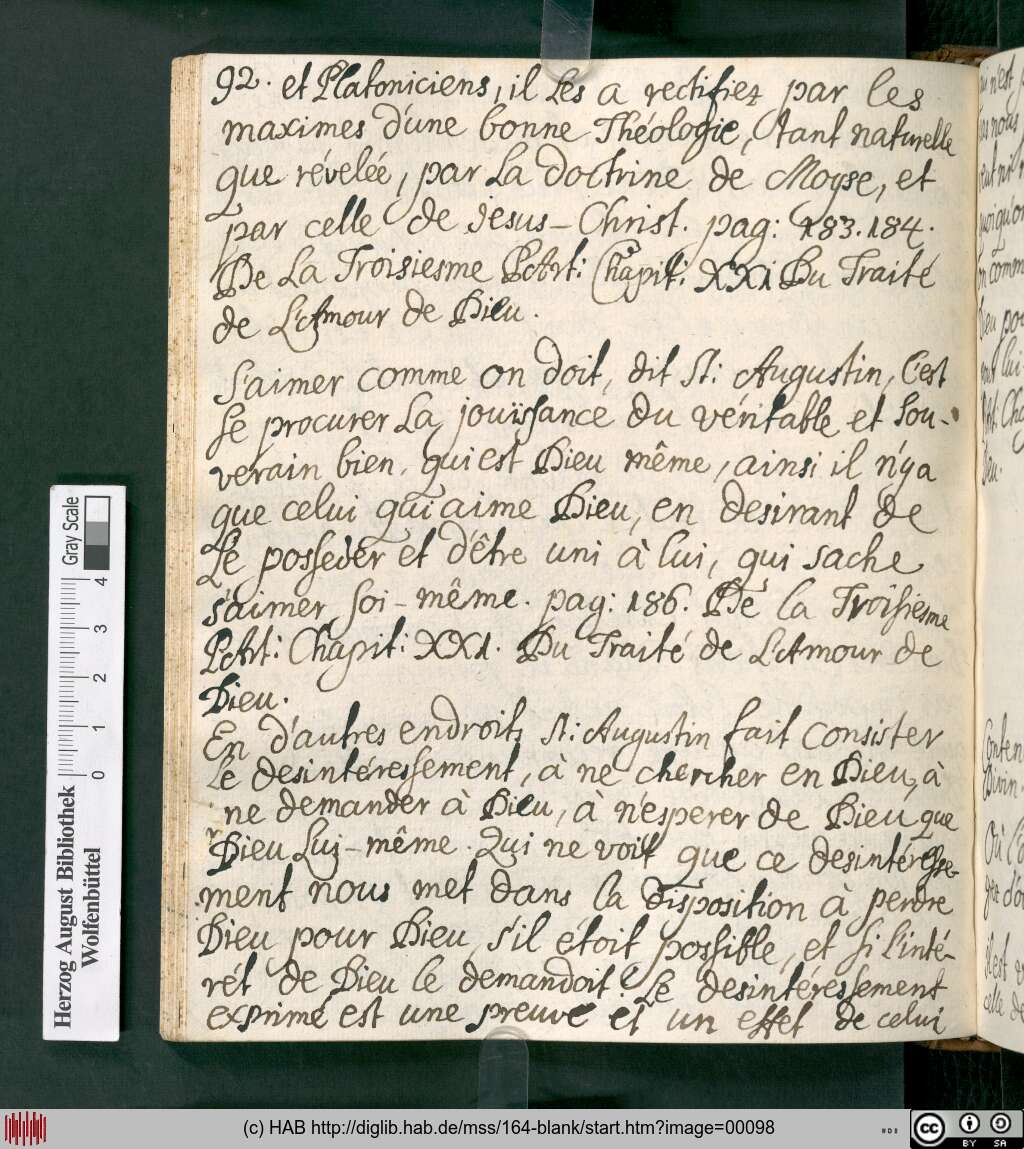 92. et Platoniciens, il les a rectifiez par les
maximes d'une bonne Théologie, tant naturelle
que révelée, par La doctrine de Moyse, et
par celle de Jesus-Christ. pag: 183. 184.
De La Troisiesme Part: Chapit: XXI Du Traité
de L'Amour de Dieu.
S'aimer comme on doit, dit St: Augustin, C'est
se procurer La jouïssance du véritable et sou-
verain bien, qui est Dieu même, ainsi il n'y a
que celui qui aime Dieu, en desirant de
Le posseder et d'être uni à lui, qui sache
s'aimer soi-même. pag: 186. De la Troisiesme
Part: Chapit: XXI. Du Traité de L'Amour de
Dieu.
En d'autres endroits St: Augustin fait consister
Le desintéressement, à ne chercher en Dieu, à
ne demander à Dieu, à n'esperer de Dieu que
Dieu Lui-même. Qui ne voit que ce desintéresse-
ment nous met dans la disposition à perdre
Dieu pour Dieu, s'il étoit possible, et si l'inté-
rét de Dieu le demandoit. Le desintéressement
exprimé est une preuve et un effet de celui
Gray Scale
0 1 2 3 4
Herzog August Bibliothek
Wolfenbüttel
(c) HAB http://diglib.hab.de/mss/164-blank/start.htm?image=00098
cc BY SA